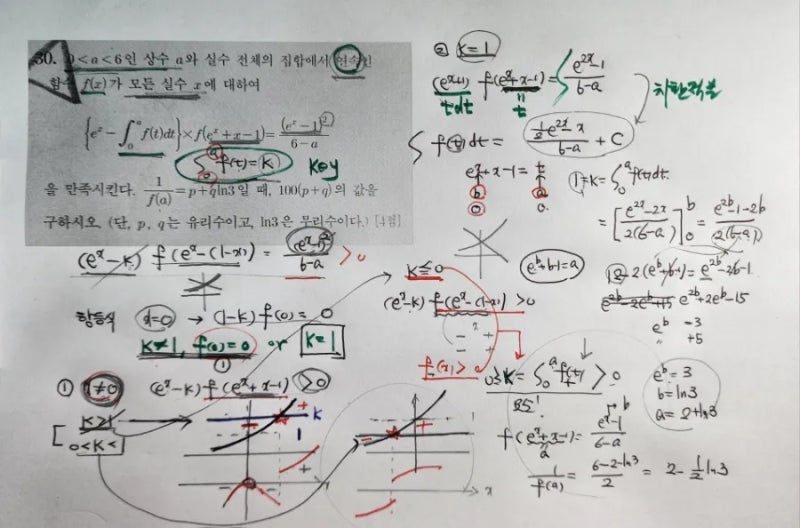 30. 0<a<6인 상수 a와 실수 전체의 집합에서 연속인
함수 f(x)가 모든 실수 x에 대하여
{e^x-∫_0^a f(t)dt}×f(e^x+x-1)=(e^x-1)^2/(6-a)
∫_0^a f(t)=K KEY
을 만족시킨다. 1/f(a)=p+q ln3일 때, 100(p+q)의 값을
구하시오. (단, p, q는 유리수이고, ln3은 무리수이다.) [4점]
(e^x-K) f(e^x-(1-x))=(e^x-1)^2/(6-a) >0
항등식 x=0 → (1-K) f(0)=0
K≠1, f(0)=0 or K=1
① K≠0 (e^x-K) f(e^x+x-1) >0
K>1
0<K<1
K
1
② K=1
(e^x+1) f(e^x+x-1)=(e^2x-1)/(6-a)
tdt t
치환적분
∫f(t)dt=(1/2 e^2x-x)/(6-a)+C
e^x+x-1=t
b a
0 0
1=K=∫_0^a f(t)dt.
=[(e^2x-2x)/(2(6-a))]_0^b=(e^2b-1-2b)/(2(6-a))
e^b+b-1=a
12-2(e^b+b-1)=e^2b-2b-1
e^2b+2e^b-15
e^b -3
+5
K≤0
(e^x-K) f(e^x-(1-x))>0
f(x)>0
0≥K=∫_0^a f(t)>0
모순!
e^b=3
b=ln3
a=2+ln3
f(e^x+x-1)=(e^x-1)/(6-a)
a
b
1/f(a)=(6-2-ln3)/2=2-1/2 ln3
x